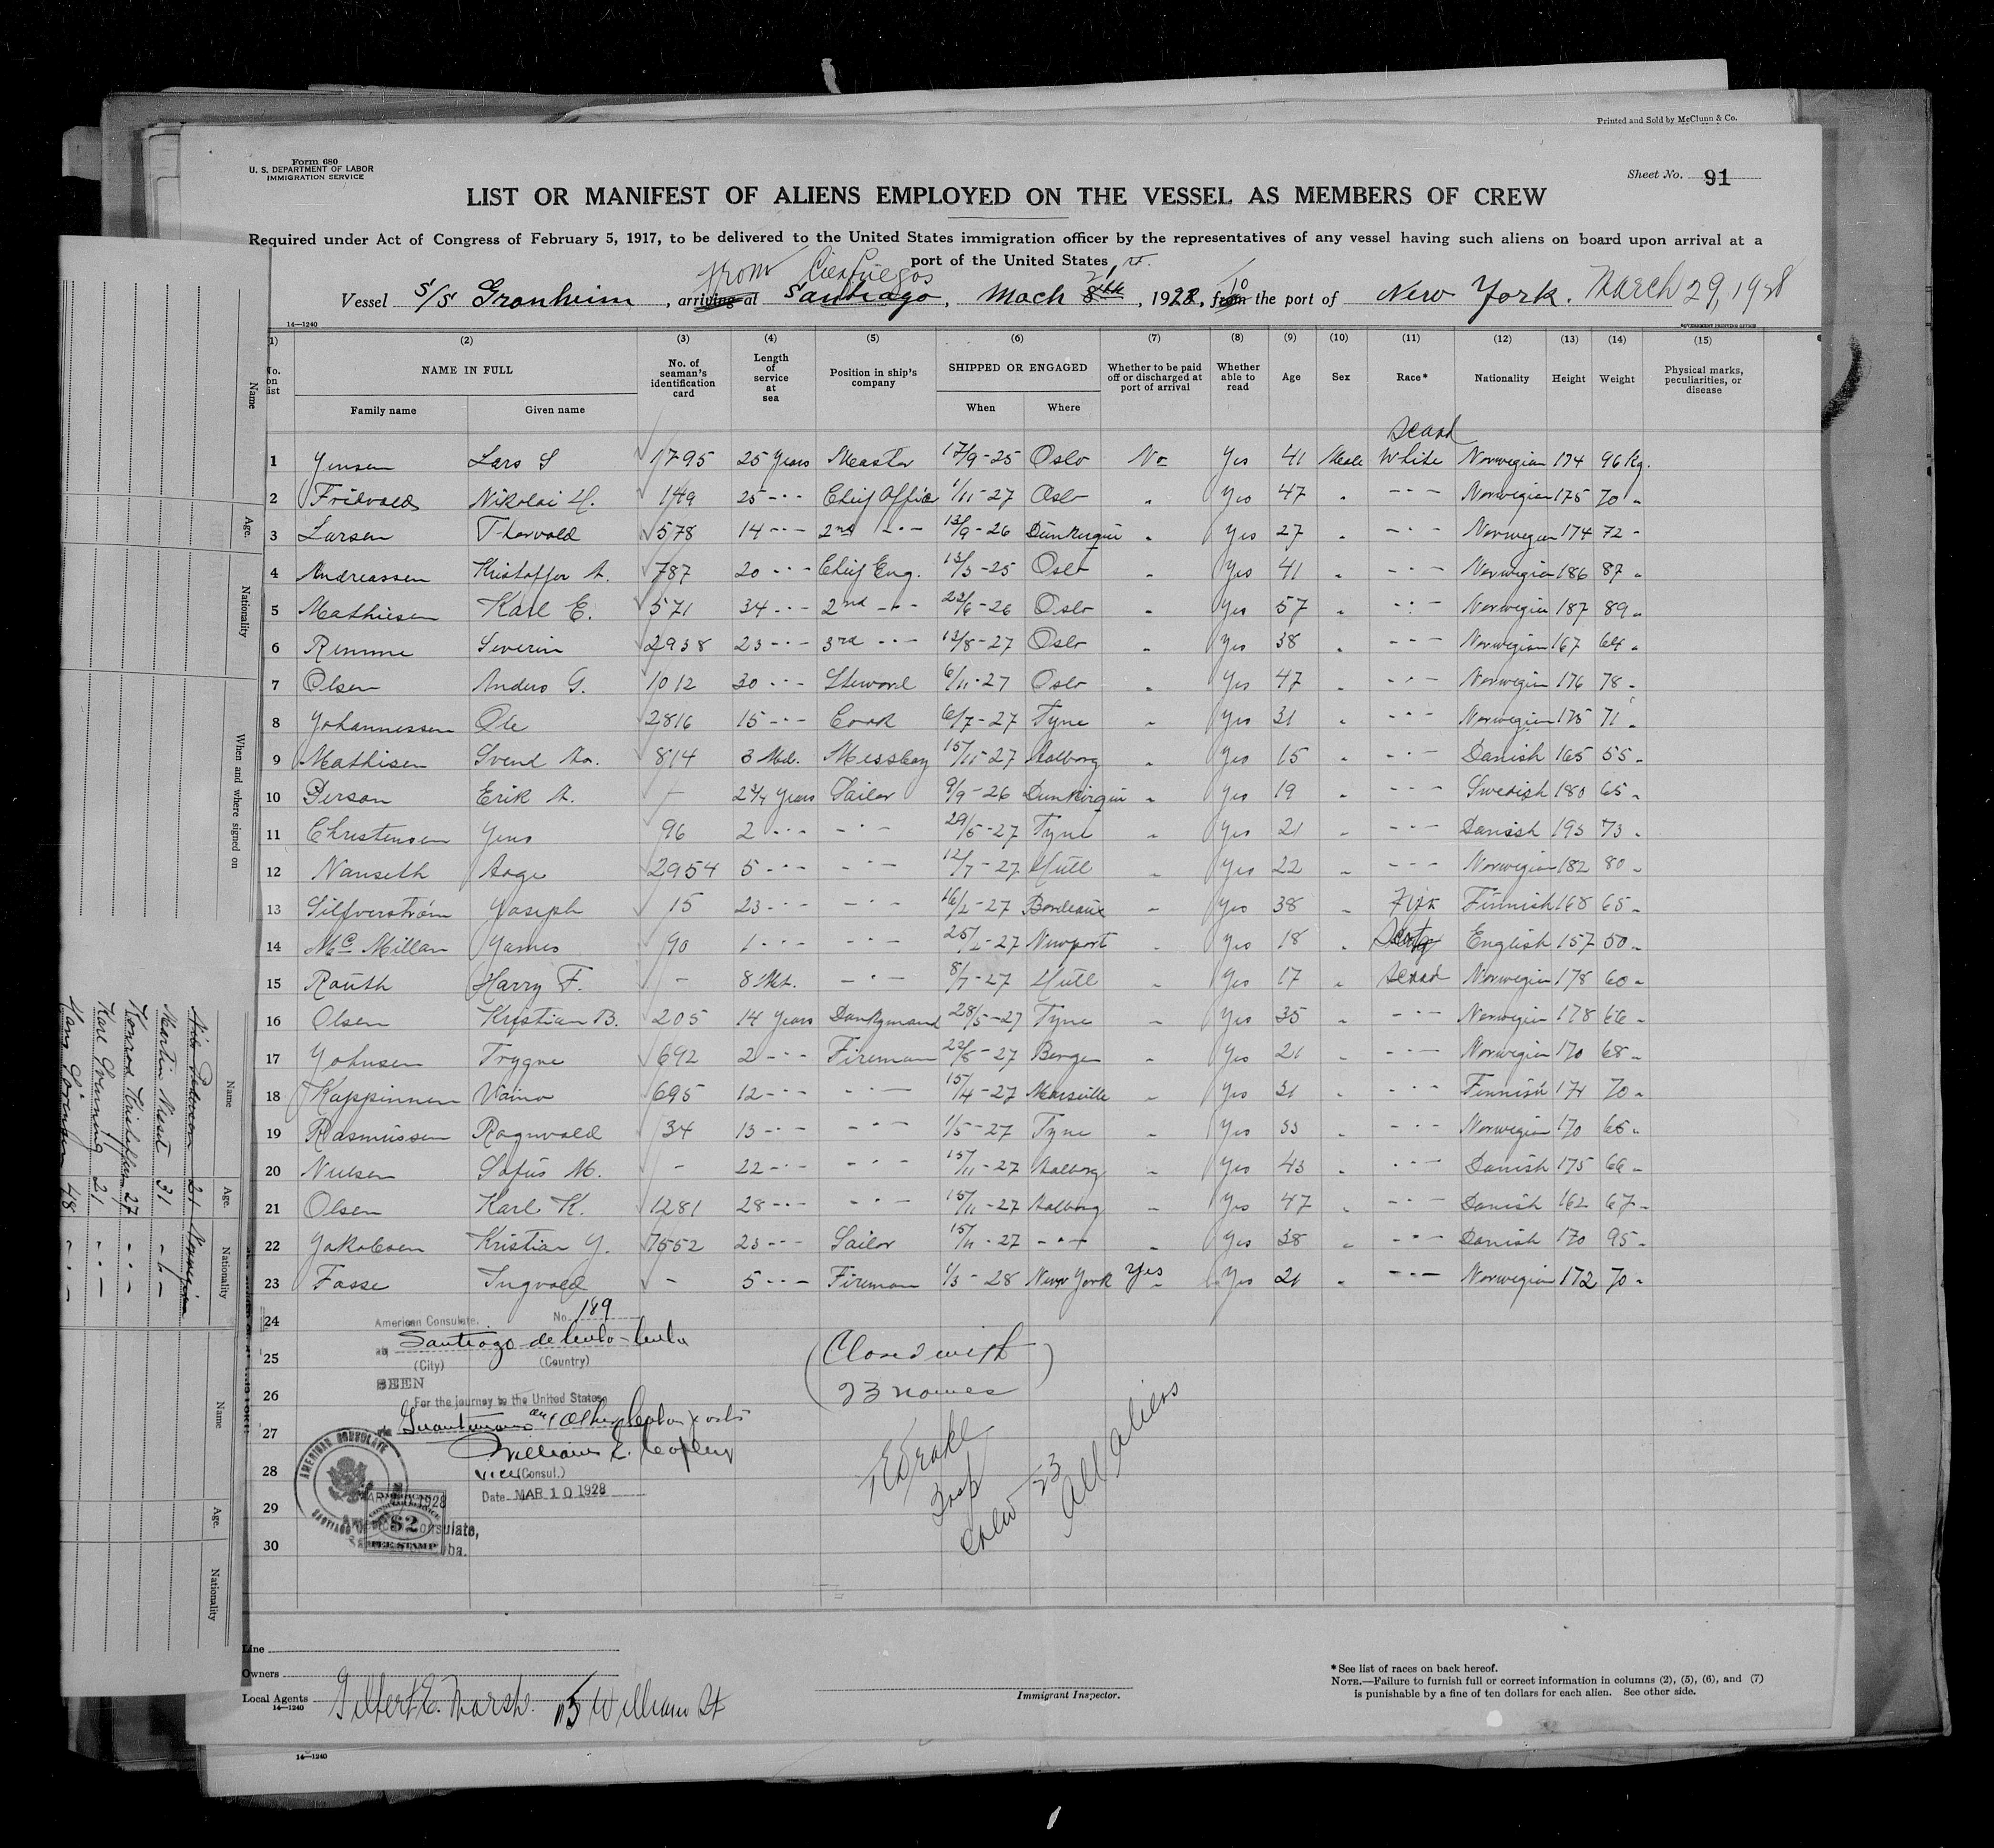 Printed and Sold by McClunn & Co.
Form 680
U. S. DEPARTMENT OF LABOR
IMMIGRATION SERVICE
Sheet No. 91
LIST OR MANIFEST OF ALIENS EMPLOYED ON THE VESSEL AS MEMBERS OF CREW
Required under Act of Congress of February 5, 1917, to be delivered to the United States immigration officer by the representatives of any vessel having such aliens on board upon arrival at a
port of the United States
from Cienfuegos
Vessel S/S Granheim, arriving at Santiago, Mach 8th, 1928, from the port of New York. March 29, 1928
14—1240
(1) (2) (3) (4) (5) (6) (7) (8) (9) (10) (11) (12) (13) (14) (15)
No. on list NAME IN FULL No. of seaman's identification card Length of service at sea Position in ship's company SHIPPED OR ENGAGED Whether to be paid off or discharged at port of arrival Whether able to read Age Sex Race* Nationality Height Weight Physical marks, peculiarities, or disease
Family name Given name When Where
Scand
1 Jensen Lars S 1795 25 Years Master 12/9-25 Oslo No Yes 41 Male White Norwegian 174 96 Kg.
2 Nikolai H. 149 25 --- Chief Office 1/11-27 Oslo " Yes 47 " --- Norwegian 175 70 "
3 Larsen Thorvald 578 14 --- 2nd --- 13/9-26 Dunkerque " Yes 27 " --- Norwegian 174 72 "
4 Andreassen Kristoffer A. 787 20 --- Chief Eng. 13/3-25 Oslo " Yes 41 " --- Norwegian 186 87 "
5 Mathiesen Karl E. 571 34 --- 2nd --- 22/6-26 Oslo " Yes 57 " --- Norwegian 187 89 "
6 Rimme Severin 2938 23 --- 3rd --- 12/8-27 Oslo " Yes 38 " --- Norwegian 167 64 "
7 Olsen Anders G. 1012 30 --- Steward 6/11-27 Oslo " Yes 47 " --- Norwegian 176 78 "
8 Johannessen Ole 2816 15 --- Cook 6/7-27 Tyne " Yes 31 " --- Norwegian 175 71 "
9 Mathisen Svend Aa. 814 3 Md. Messboy 15/11-27 Aalborg " Yes 15 " --- Danish 165 55 "
10 Person Erik A. - Years Sailor 9/9-26 Dunkirque " Yes 19 " --- Swedish 180 65 "
11 Christensen Jens 96 2 --- --- 29/5-27 Tyne " Yes 21 " --- Danish 193 73 "
12 Nanseth Aage 2954 5 --- --- 12/7-27 Hull " Yes 22 " --- Norwegian 182 80 "
13 Silfverström Joseph 15 23 --- --- 16/2-27 Bordeaux " Yes 38 " Finn Finnish 168 65 "
14 Mc Millan James 90 1 --- --- -27 Newport " Yes 18 " Scotch English 157 50 "
15 Routh Harry F. - 8 Mt. --- 8/7-27 Hull " Yes 17 " Scand Norwegian 178 60 "
16 Olsen Kristian B. 205 14 Years Donkymand 28/5-27 Tyne " Yes 35 " --- Norwegian 178 66 "
17 Johnsen Trygve 692 2 --- Fireman 22/8-27 Bergen " Yes 21 " --- Norwegian 170 68 "
18 Kappinnen Vaino 695 12 --- --- 15/4-27 Marseille " Yes 31 " --- Finnish 171 70 "
19 Rasmussen Ragnvald 34 13 --- --- 1/5-27 Tyne " Yes 33 " --- Norwegian 170 65 "
20 Nielsen Sofus M. - 22 --- --- 15/11-27 Aalborg " Yes 43 " --- Danish 175 66 "
21 Olsen Karl K. 1281 28 --- --- 15/11-27 Aalborg " Yes 47 " --- Danish 162 67 "
22 Jakobsen Kristian J. 7552 23 --- Sailor 15/11-27 --- " Yes 38 " --- Danish 170 95 "
23 Fasse Ingvald - 5 --- Fireman 1/3-28 New York Yes Yes 21 " --- Norwegian 172 70 "
24
25
26
27
28
29
30
American Consulate. No. 189
at Santiago de Cuba - Cuba
(City) (Country)
SEEN
For the journey to the United States
via Guantanamo and Other Cuban ports
Vice (Consul.)
Date MAR 10 1928
AMERICAN CONSULATE
$2
FEE STAMP
American Consulate,
(Closed with
23 names)
Insp
Crew 23
All Aliens
Name Age. Nationality When and where signed on
Name Age. Nationality
Nils Pedersen 21 Norwegian
Martin 31 - " -
Konrad Kristoffersen 27 - - -
Karl Grenning 21 - - -
Hans Sörensen 48 - - -
Name Age. Nationality
Line
Owners
Local Agents Gilbert E. Marsh. 115 William St
14—1240
Immigrant Inspector.
*See list of races on back hereof.
NOTE.—Failure to furnish full or correct information in columns (2), (5), (6), and (7)
is punishable by a fine of ten dollars for each alien. See other side.
14—1240